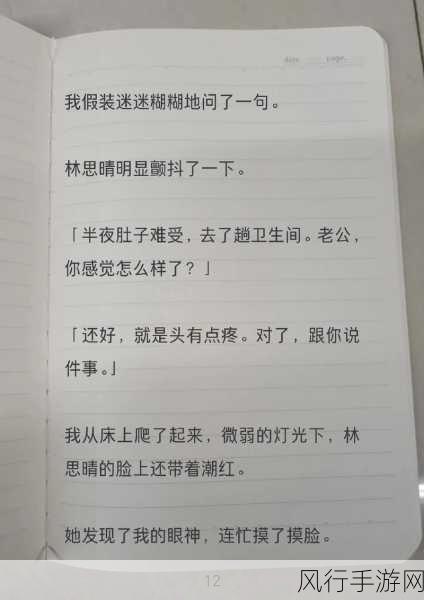 date page.
我假装迷迷糊糊地问了一句。
林思晴明显颤抖了一下。
「半夜肚子难受，去了趟卫生间。老公，
你感觉怎么样了？」
「还好，就是头有点疼。对了，跟你说
件事。」
我从床上爬了起来，微弱的灯光下，林
思晴的脸上还带着潮红。
她发现了我的眼神，连忙摸了摸脸。
12
风行手游网